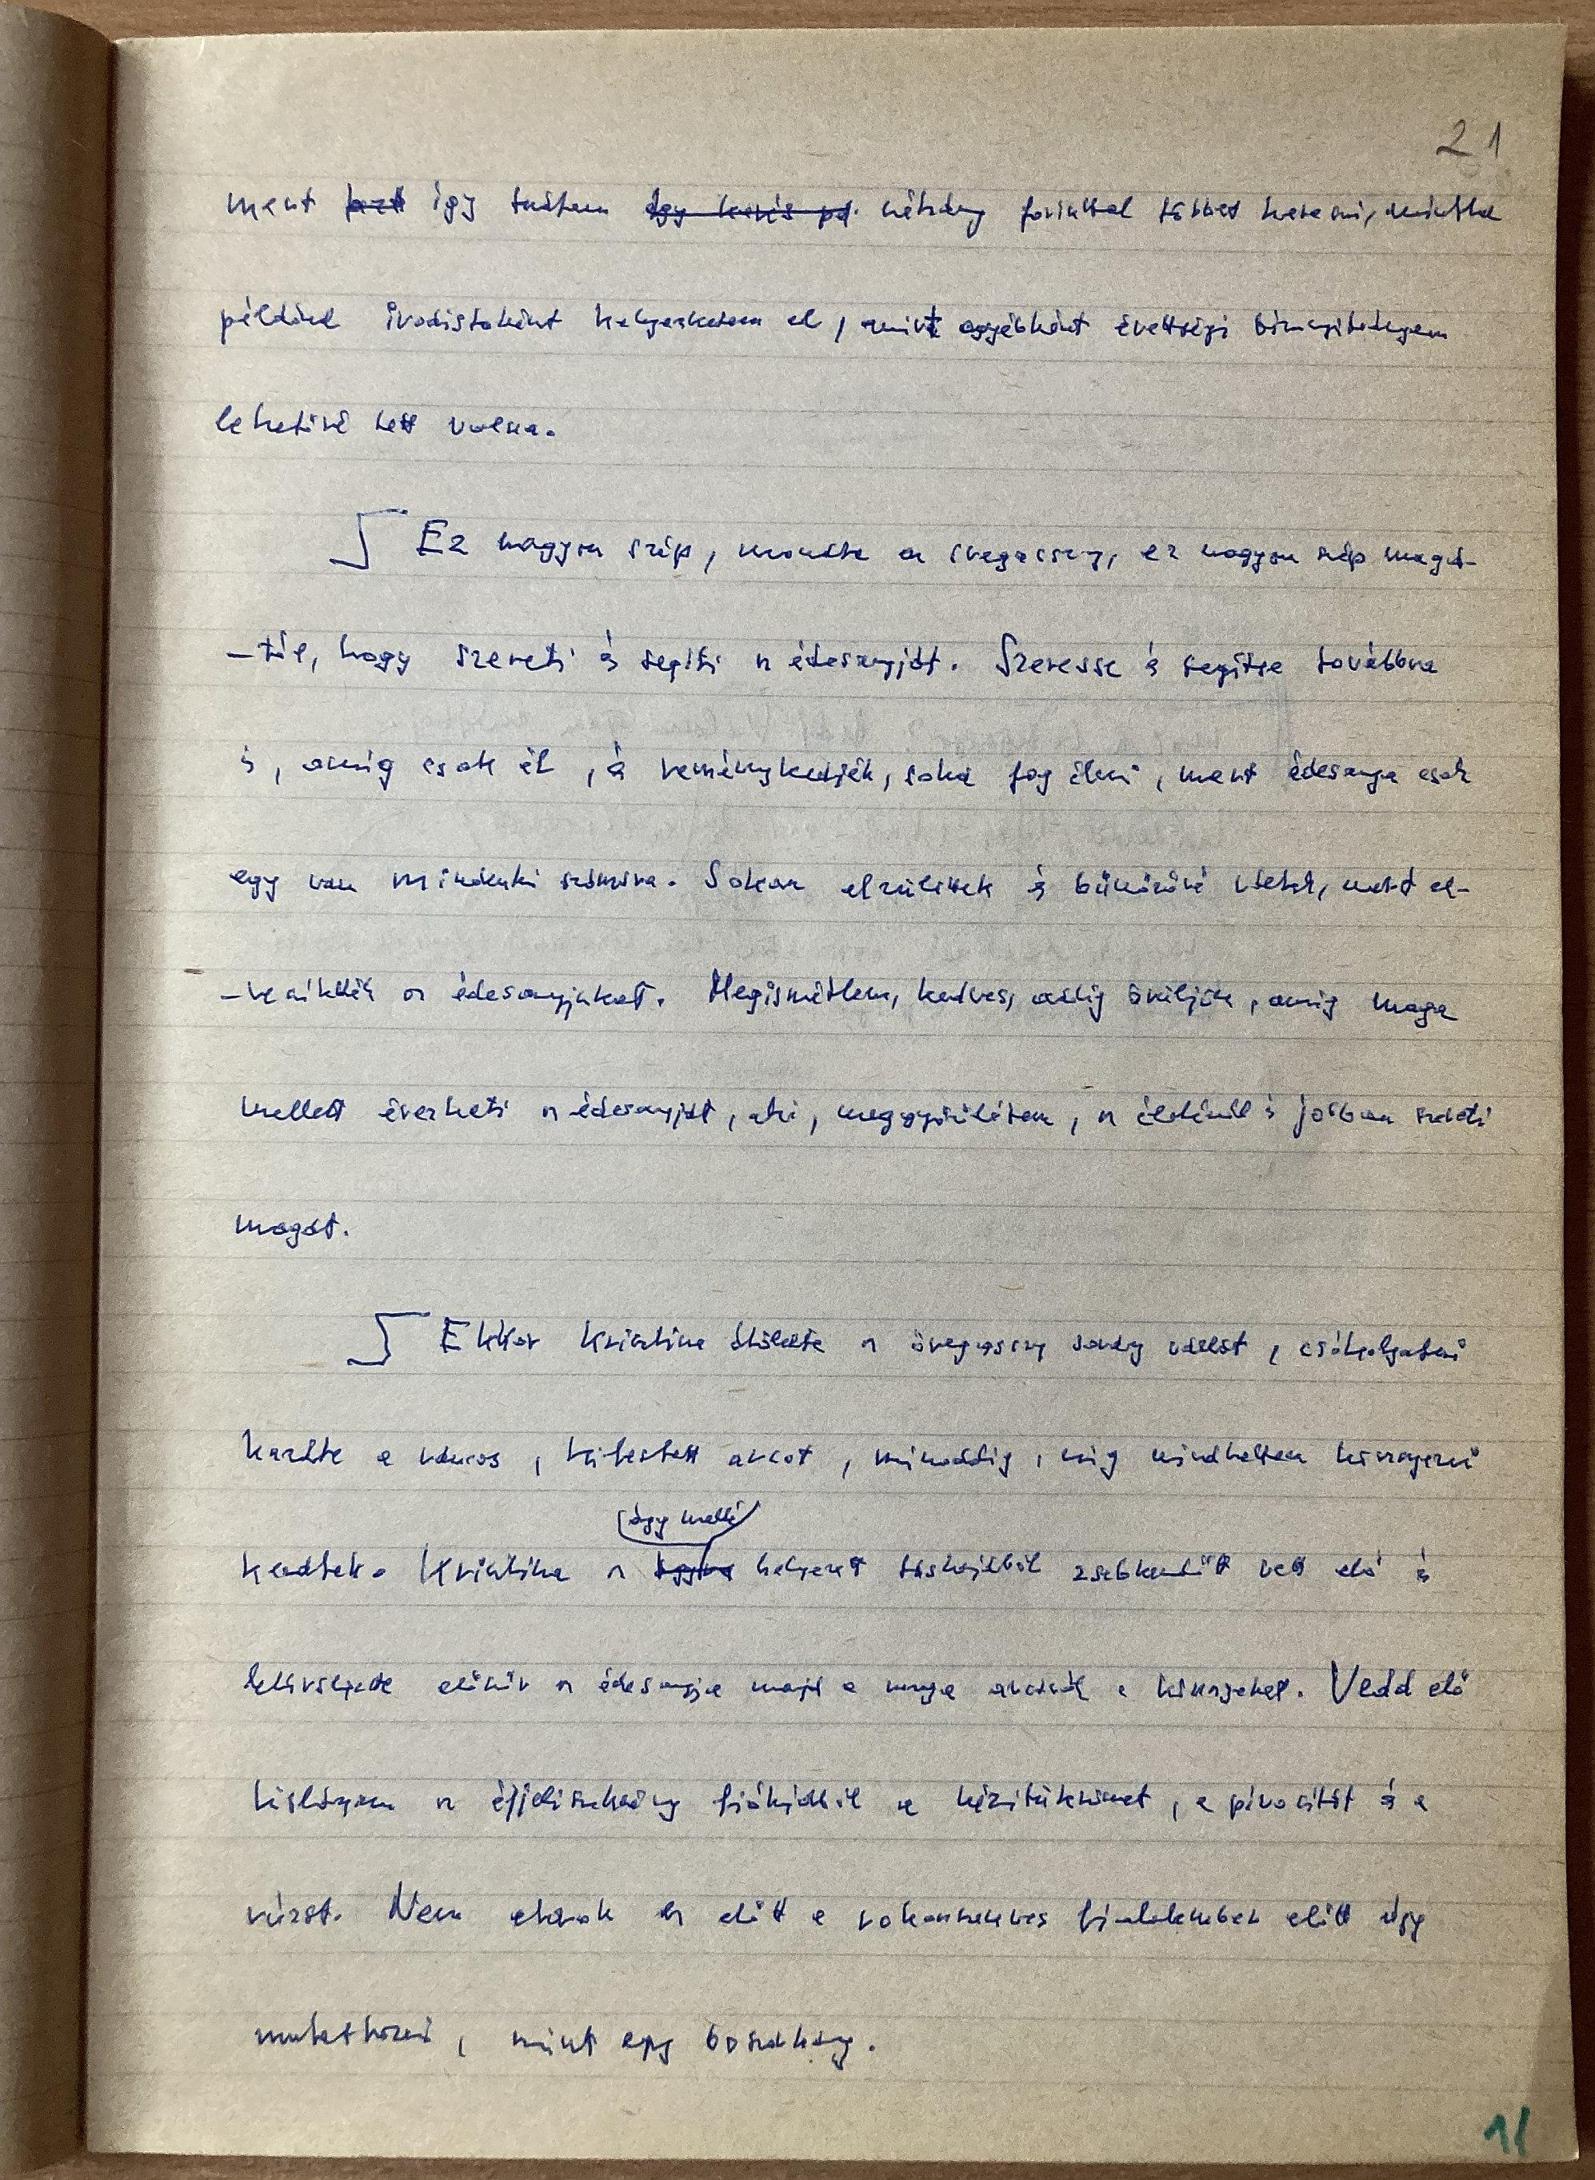 21
mert azt így tudtam egy kevés pé. néhány forinttal többet keresni, mintha
például irodistaként helyezkedem el, mint egyébként érettségi bizonyítványom
lehetővé tett volna.
Ez nagyon szép, mondta az öregasszony, ez nagyon szép magá-
-tól, hogy szereti és segíti az édesanyját. Szeresse és segítse továbbra
is, amíg csak él, és reménykedjék, soká fog élni, mert édesanya csak
egy van mindenki számára. Sokan elzüllöttek és bűnözővé váltak, mert el-
-veszítették az édesanyjukat. Megismétlem, kedves, addig örüljön, amíg maga
mellett érezheti az édesanyját, aki, meggyőződésem, az életénél is jobban szereti
magát.
Ekkor Krisztina átölelte az öregasszony sovány vállát, csókolgatni
kezdte a ráncos, kifestett arcot, mindaddig, míg mindketten könnyezni
ágy melli
kezdtek. Krisztina az helyezett táskájából zsebkendőt vett elő és
először az édesanyja majd a maga arcáról a könnyeket. Vedd elő
kislányom az éjjeliszekrény fiókjából a kézitükrömet, a pirosítót és a
rúzst. Nem akarok ez előtt a rokonszenves fiatalember előtt úgy
mutatkozni, mint egy boszorkány.
11